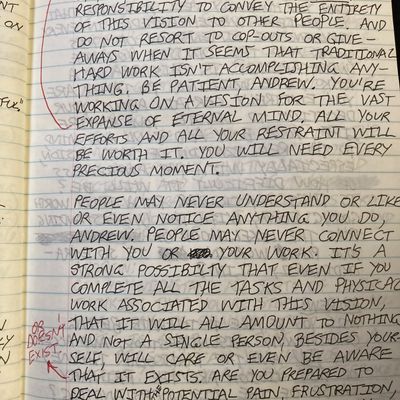 RESPONSIBILITY TO CONVEY THE ENTIRETY
OF THIS VISION TO OTHER PEOPLE. AND
DO NOT RESORT TO COP-OUTS OR GIVE-
AWAYS WHEN IT SEEMS THAT TRADITIONAL
HARD WORK ISN'T ACCOMPLISHING ANY-
THING. BE PATIENT, ANDREW. YOU'RE
WORKING ON A VISION FOR THE VAST
EXPANSE OF ETERNAL MIND, ALL YOUR
EFFORTS AND ALL YOUR RESTRAINT WILL
BE WORTH IT. YOU WILL NEED EVERY
PRECIOUS MOMENT.
PEOPLE MAY NEVER UNDERSTAND OR LIKE
OR EVEN NOTICE ANYTHING YOU DO,
ANDREW. PEOPLE MAY NEVER CONNECT
WITH YOU OR YOUR WORK. IT'S A
STRONG POSSIBILTY THAT EVEN IF YOU
COMPLETE ALL THE TASKS AND PHYSICAL
WORK ASSOCIATED WITH THIS VISION,
THAT IT WILL ALL AMOUNT TO NOTHING
AND NOT A SINGLE PERSON, BESIDES YOUR-
SELF, WILL CARE OR EVEN BE AWARE
THAT IT EXISTS. ARE YOU PREPARED TO
DEAL WITH POTENTIAL PAIN, FRUSTRATION,
OR
DOESN'T
EXIST
ON